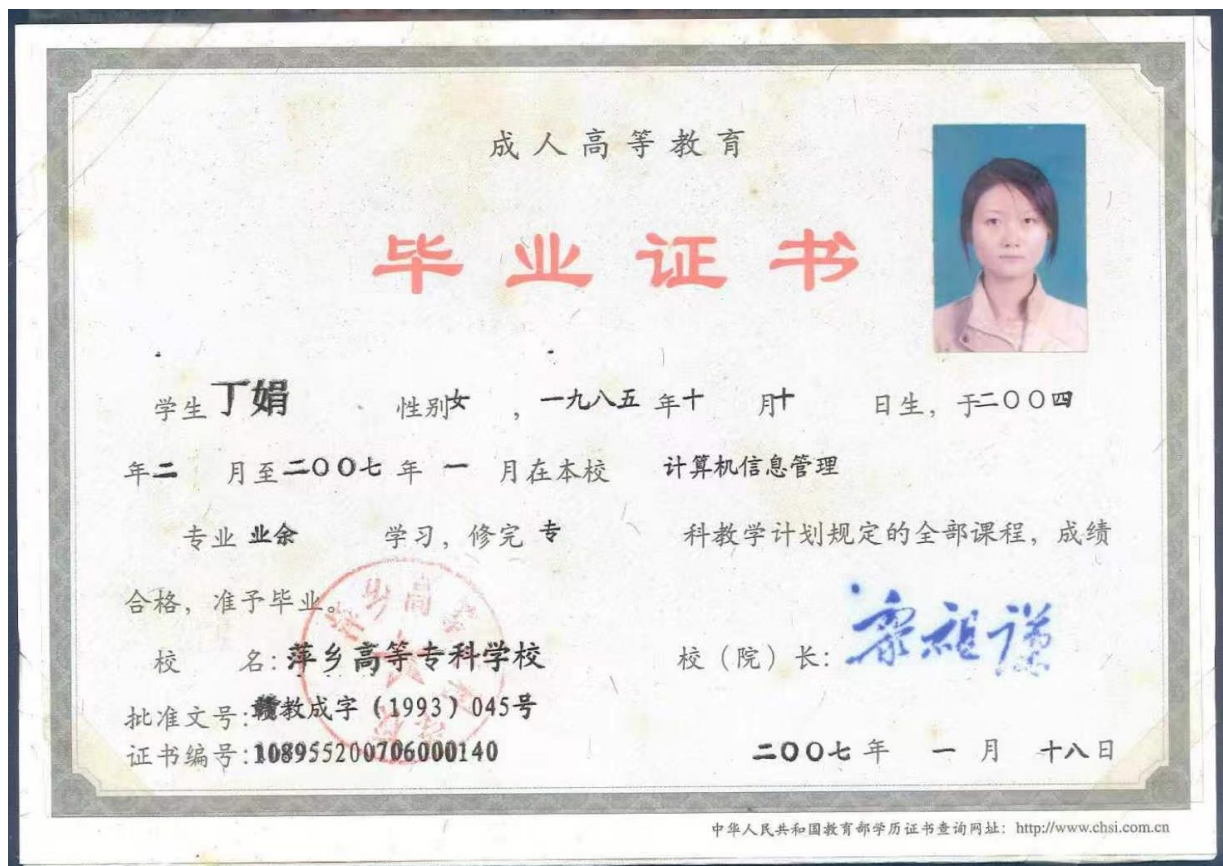 成人高等教育
毕业证书
学生 丁娟 性别 女 ,一九八五 年 十 月 十 日生,于二〇〇四
年 二 月至 二〇〇七 年 一 月在本校 计算机信息管理
专业 业余 学习,修完 专 科教学计划规定的全部课程,成绩
合格,准予毕业。
校 名:萍乡高等专科学校 校(院)长:
批准文号:赣教成字(1993)045号
证书编号:108955200706000140 二〇〇七 年 一 月 十八 日
中华人民共和国教育部学历证书查询网址:http://www.chsi.com.cn